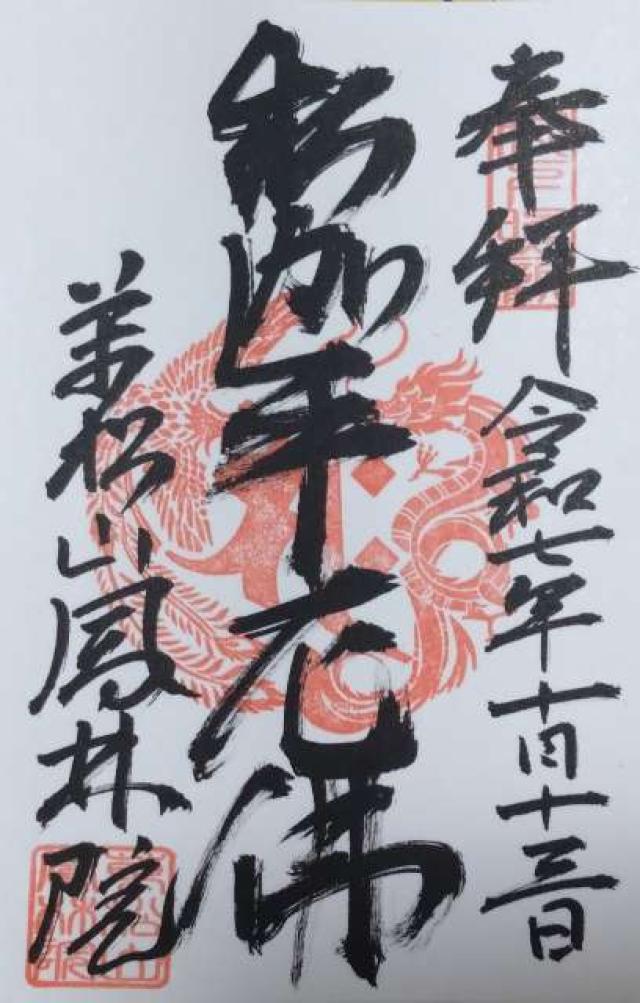 奉拝 令和七年十月十三日
釈迦牟尼佛
萬松山鳳林院